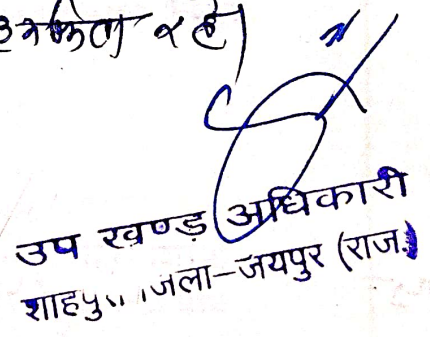 रहे।
उप खण्ड अधिकारी
शाहपु... जला-जयपुर (राज.)